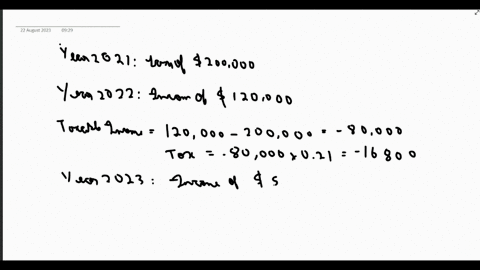 22 August 2023 09:39
Year 2021: loss of $200,000
Year 2022: Income of $ 120,000
Taxable Income = 120,000 - 200,000 = -80,000
Tax = -80,000 x 0.21 = -16800
Year 2023: Income of $ 5